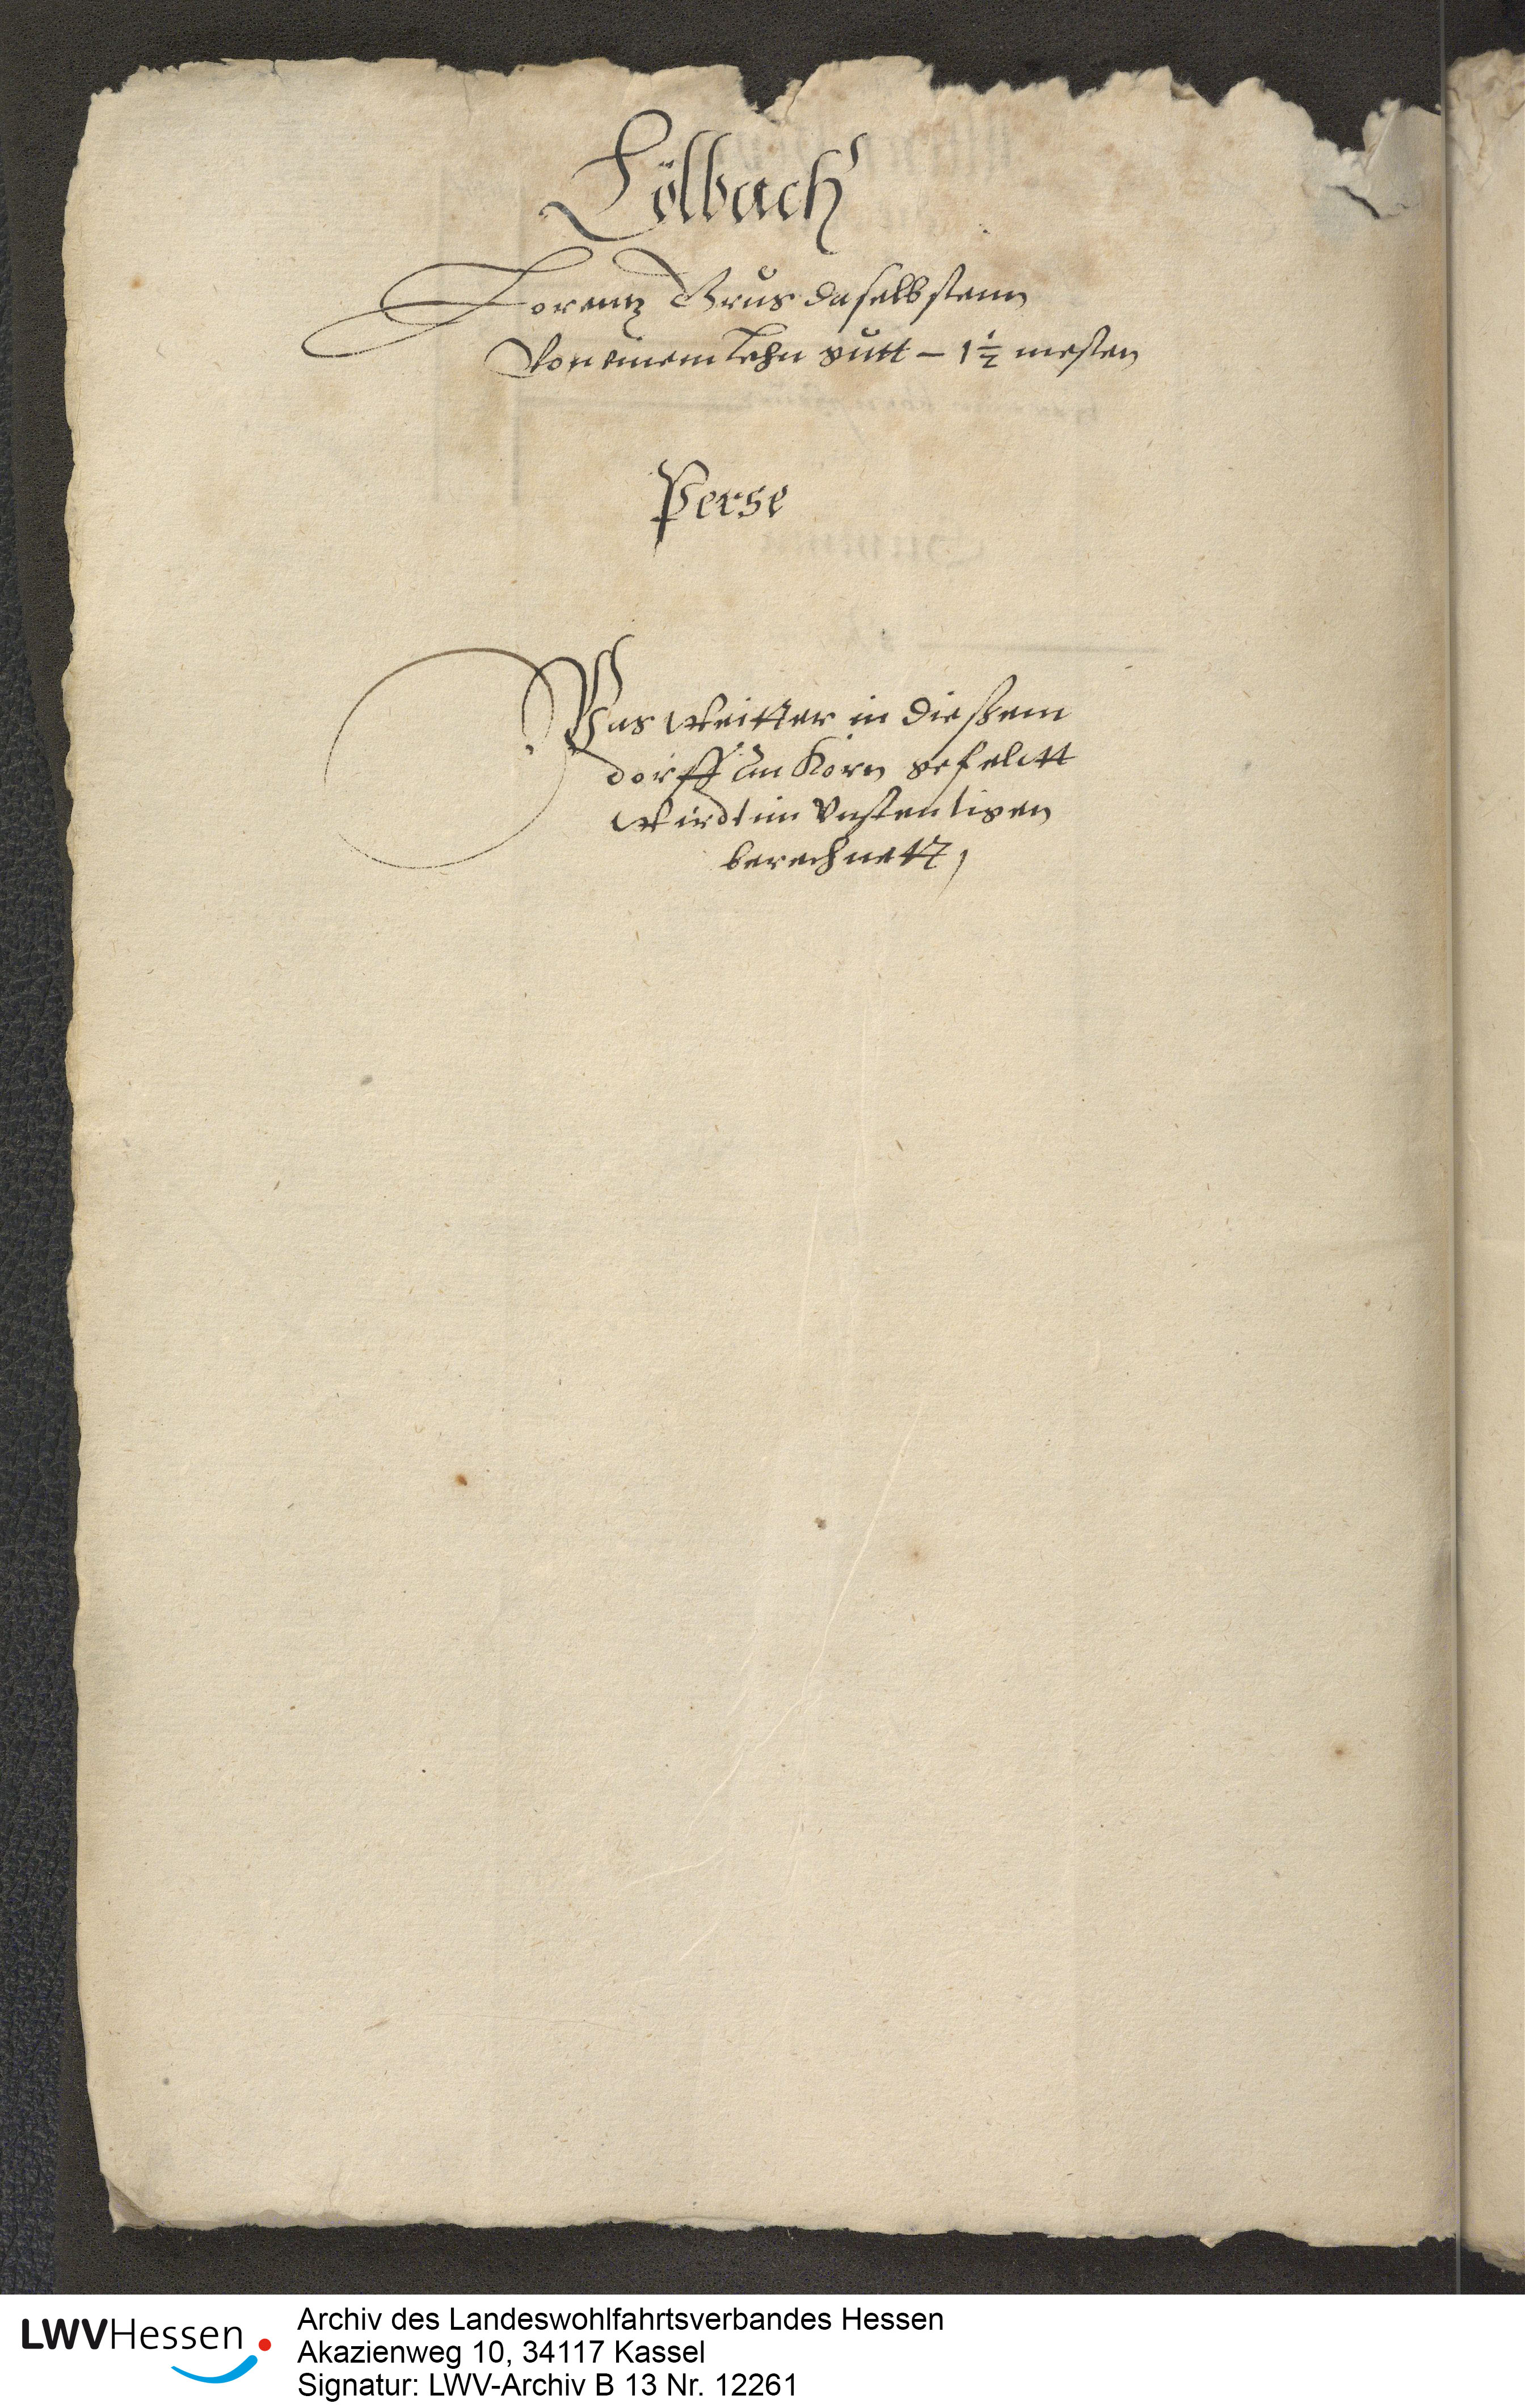 Lölbach
Lorentz Brus daselbstenn
Von einem Lehn gutt – 1 ½ mesten
Perse
Was weitter in dießem
dorff an Korn gefelett
wirdt im Vnstentigen
berechnett,
LWVHessen
Archiv des Landeswohlfahrtsverbandes Hessen
Akazienweg 10, 34117 Kassel
Signatur: LWV-Archiv B 13 Nr. 12261